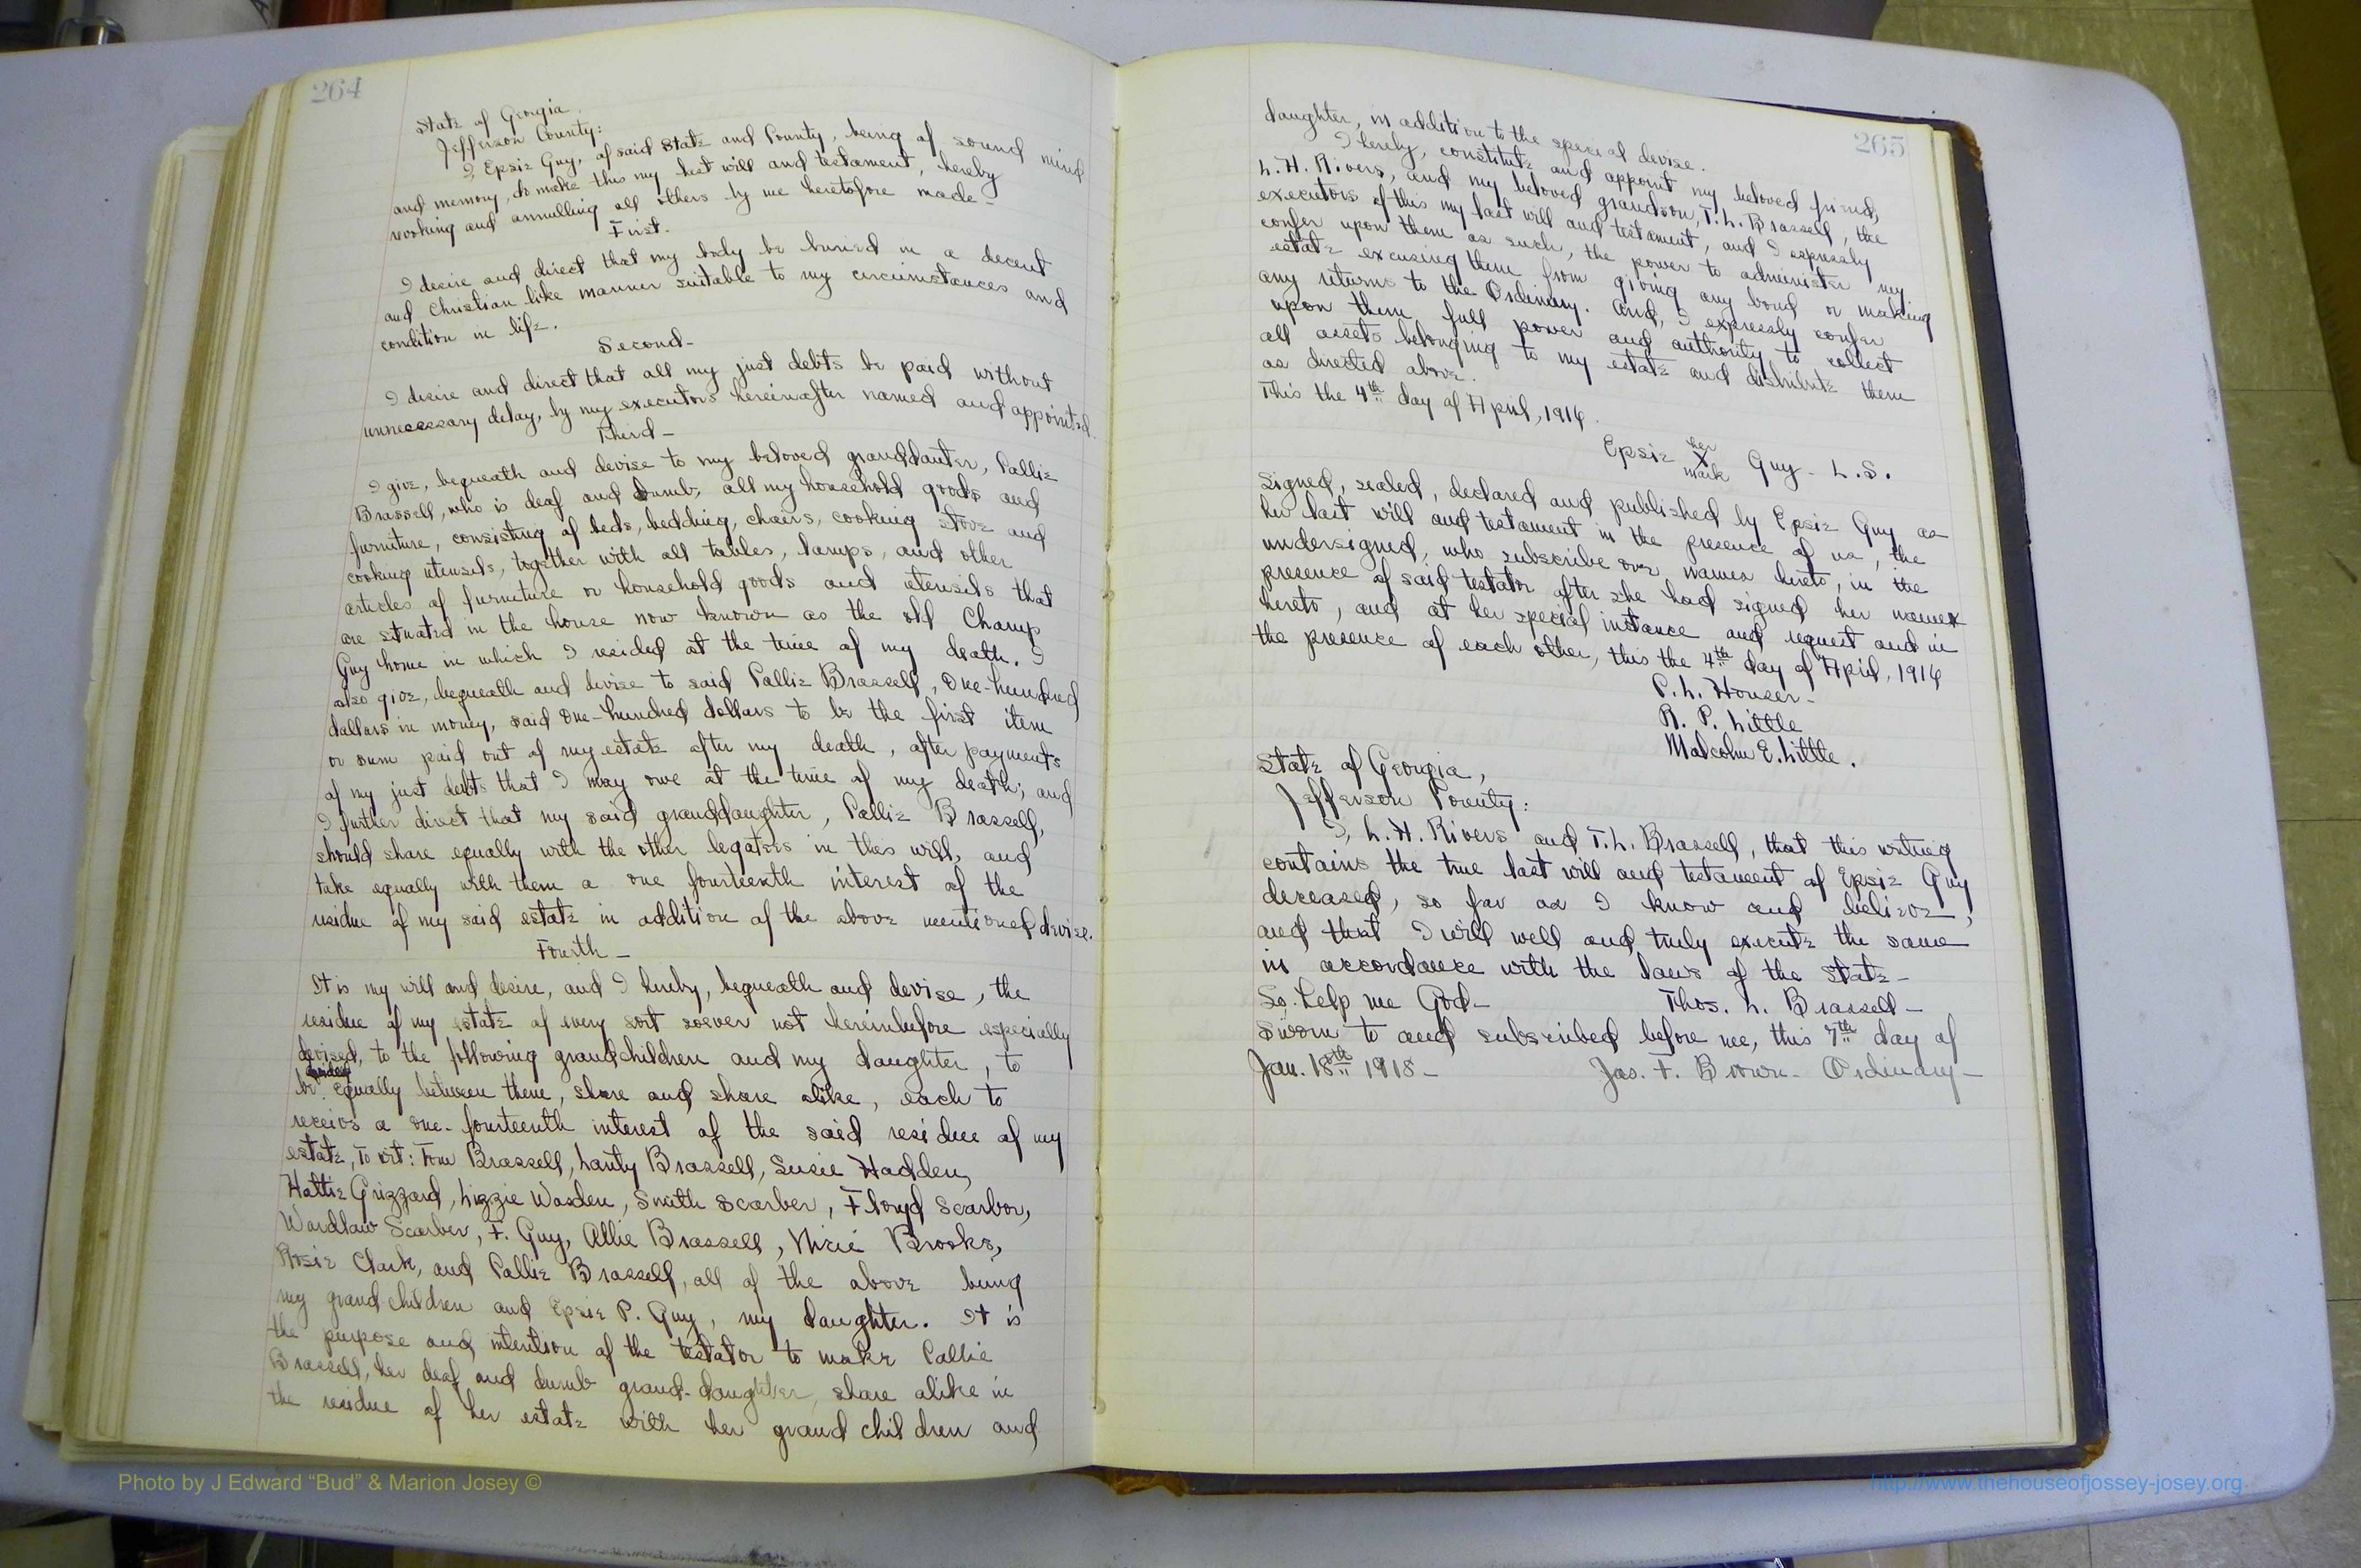 264
State of Georgia
Jefferson County:
I Epsie Guy, of said State and County, being of sound mind
and memory, do make this my last will and testament, hereby
revoking and annulling all others by me heretofore made-
First.
I desire and direct that my body be buried in a decent
and Christian like manner suitable to my circumstances and
condition in life.
Second-
I desire and direct that all my just debts be paid without
unnecessary delay, by my executors hereinafter named and appointed.
Third-
I give, bequeath and devise to my beloved granddauter, Callie
Brassell, who is deaf and dumb, all my household goods and
furniture, consisting of beds, bedding, chairs, cooking stove and
cooking utensils, together with all tables, lamps, and other
articles of furniture or household goods and utensils that
are situated in the house now known as the old Champ
Guy home in which I resided at the time of my death. I
also give, bequeath and devise to said Callie Brassell, One-hundred
dollars in money, said One-hundred dollars to be the first item
or sum paid out of my estate after my death, after payments
of my just debts that I may owe at the time of my death; and
I further direct that my said granddaughter, Callie Brassell,
should share equally with the other legatees in this will, and
take equally with them a one fourteenth interest of the
residue of my said estate in addition of the above mentioned devise.
Fourth-
It is my will and desire, and I hereby, bequeath and devise, the
residue of my estate of every sort soever not hereinbefore especially
devised, to the following grandchildren and my daughter, to
be equally between them, share and share alike, each to
receive a one-fourteenth interest of the said residue of my
estate, To wit: Tom Brassell, Lanty Brassell, Susie Hadden,
Hattie Grizzard, Lizzie Wasden, Smith Scarber, Floyd Scarbor,
Wardlaw Scarber, F. Guy, Allie Brassell, Brooks,
Rosie Clark, and Callie Brassell, all of the above being
my grandchildren and Epsie P. Guy, my daughter. It is
the purpose and intention of the testator to make Callie
Brassell, her deaf and dumb grand-daughter, share alike in
the residue of her estate with her grand children and
265
daughter, in addition to the special devise.
I hereby, constitute and appoint my beloved friend,
L. H. Rivers, and my beloved grandson, T. L. Brassell, the
executors of this my last will and testament, and I expressly
confer upon them as such, the power to administer my
estate excusing them from giving any bond or making
any returns to the Ordinary. And, I expressly confer
upon them full power and authority to collect
all assets belonging to my estate and distribute them
as directed above.
This the 4th day of April, 1916.
her
Epsie X Guy- L.S.
mark
Signed, sealed, declared and published by Epsie Guy as
her last will and testament in the presence of us, the
undersigned, who subscribe over names hereto, in the
presence of said testator after she had signed her name
hereto, and at her special instance and request and in
the presence of each other, this the 4th day of April, 1916
C. L. Houser-
R. P. Little
Malcolm E. Little.
State of Georgia,
Jefferson County:
I, L. H. Rivers and T. L. Brassell, that this writing
contains the true last will and testament of Epsie Guy
deceased, so far as I know and believe,
and that I will well and truly execute the same
in accordance with the laws of the State-
So help me God- Thos. L. Brassell-
Sworn to and subscribed before me, this 7th day of
Jan. 18th 1918- Jas. F. Brown- Ordinary-
Photo by J Edward “Bud” & Marion Josey ©
http://www.thehouseofjossey-josey.org